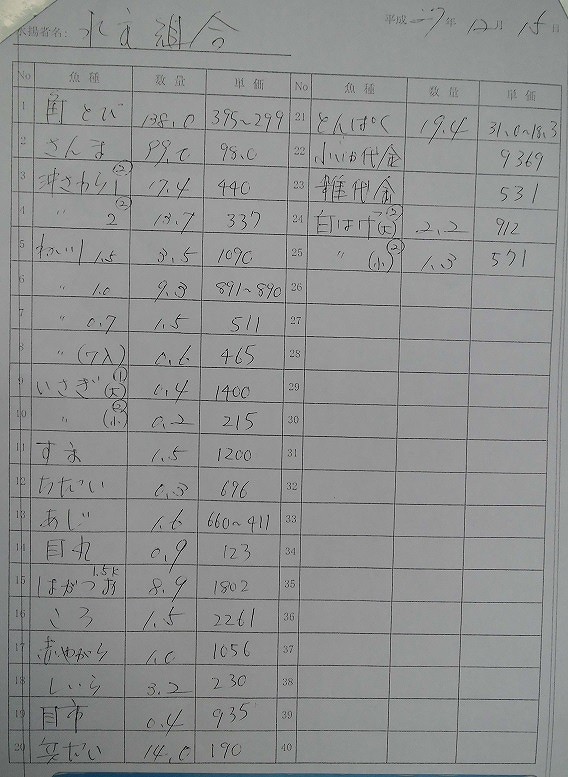 水揚者名: 水主組合
平成 27 年 12 月 15 日
No 魚種 数量 単価
1 角とび 138.0 395~299
2 さんま 99.0 98.0
3 沖さわら1② 17.4 440
4 〃 2② 13.7 337
5 わかし1.5 3.5 1090
6 〃 1.0 9.3 891~890
7 〃 0.7 1.5 511
8 〃 (ワ入) 0.6 465
9 いさぎ(大)① 0.4 1400
10 〃 (小)② 0.2 215
11 すま 1.5 1200
12 0.3 696
13 あじ 1.6 660~411
14 目丸 0.9 123
15 はがつお 1.5K 8.9 1802
16 ころ 1.5 2261
17 赤やがら 1.0 1056
18 しいら 3.2 230
19 目市 0.4 935
20 14.0 190
No 魚種 数量 単価
21 とんぱく 19.4 31.0~18.3
22 代金 9369
23 雑代金 531
24 白はげ(大) 2.2 912
25 〃 (小)② 1.3 571
26
27
28
29
30
31
32
33
34
35
36
37
38
39
40